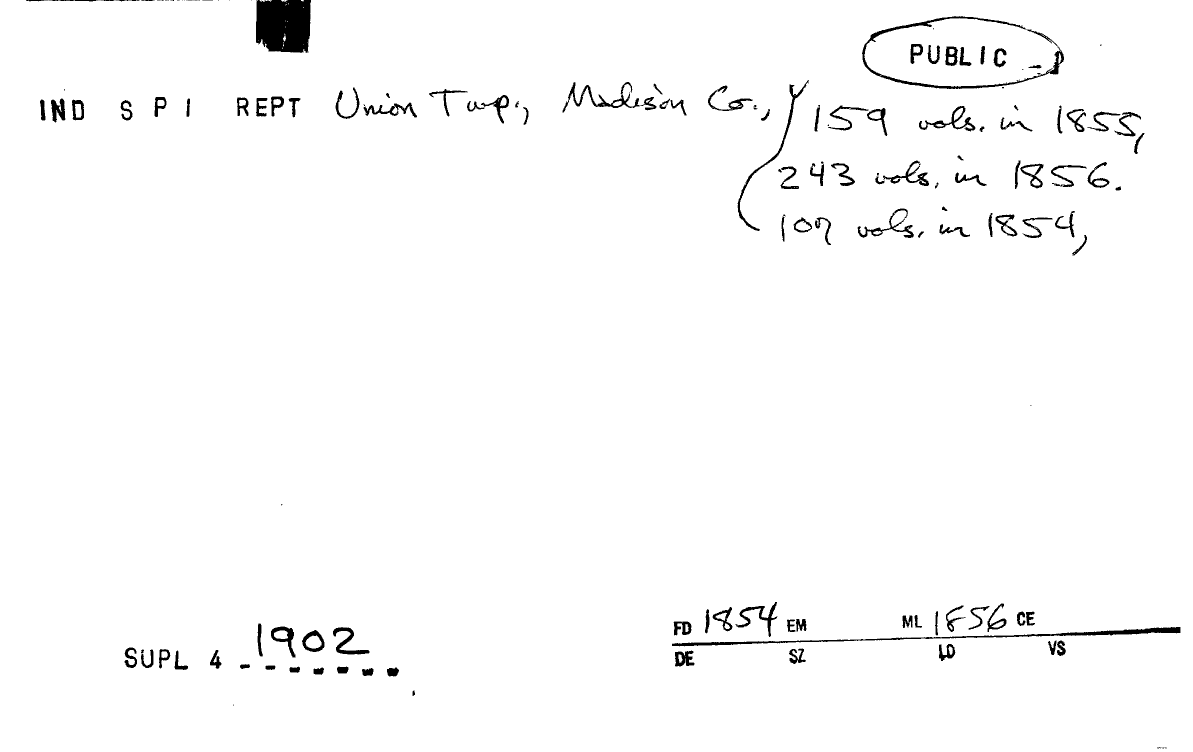 PUBLIC - P
IND S P I REPT Union Twp., Madison Co., 159 vols. in 1855,
243 vols. in 1856.
107 vols. in 1854,
SUPL 4 1902
FD 1854 EM ML 1856 CE
DE SZ LD VS